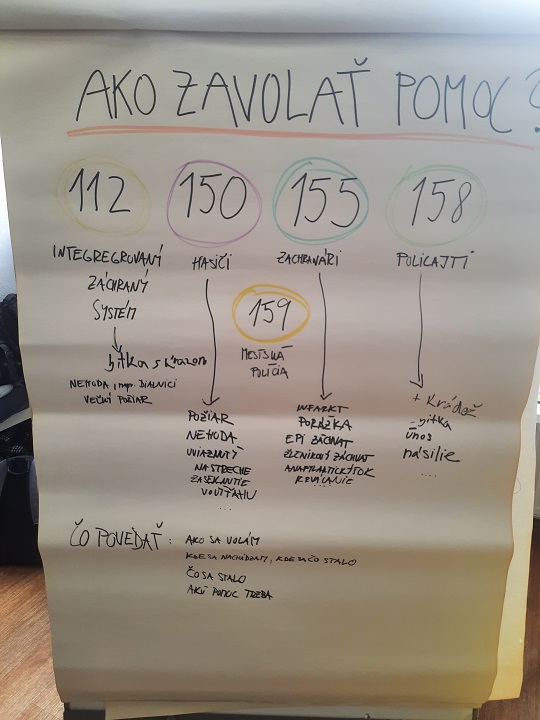 AKO ZAVOLAŤ POMOC?
112
INTEGREGROVANÝ
ZÁCHRANÝ
SYSTÉM
bitka s úrazom
NEHODA, napr. DIALNICI
VEĽKÝ POŽIAR
150
HASIČI
POŽIAR
NEHODA
UVIAZNUTÝ
NA STRECHE
ZASEKNUTIE
VO VÝŤAHU
...
159
MESTSKÁ
POLÍCIA
155
ZÁCHRANÁRI
INFARKT
PORÁŽKA
EPI ZÁCHVAT
ŽLČNÍKOVÝ ZÁCHVAT
ANAFYLAKTICKÝ ŠOK
KRVÁCANIE
....
158
POLICAJTI
+ Krádež
bitka
únos
násilie
....
ČO POVEDAŤ:
AKO SA VOLÁM
KDE SA NACHÁDZAM, KDE SA ČO STALO
ČO SA STALO
AKÚ POMOC TREBA